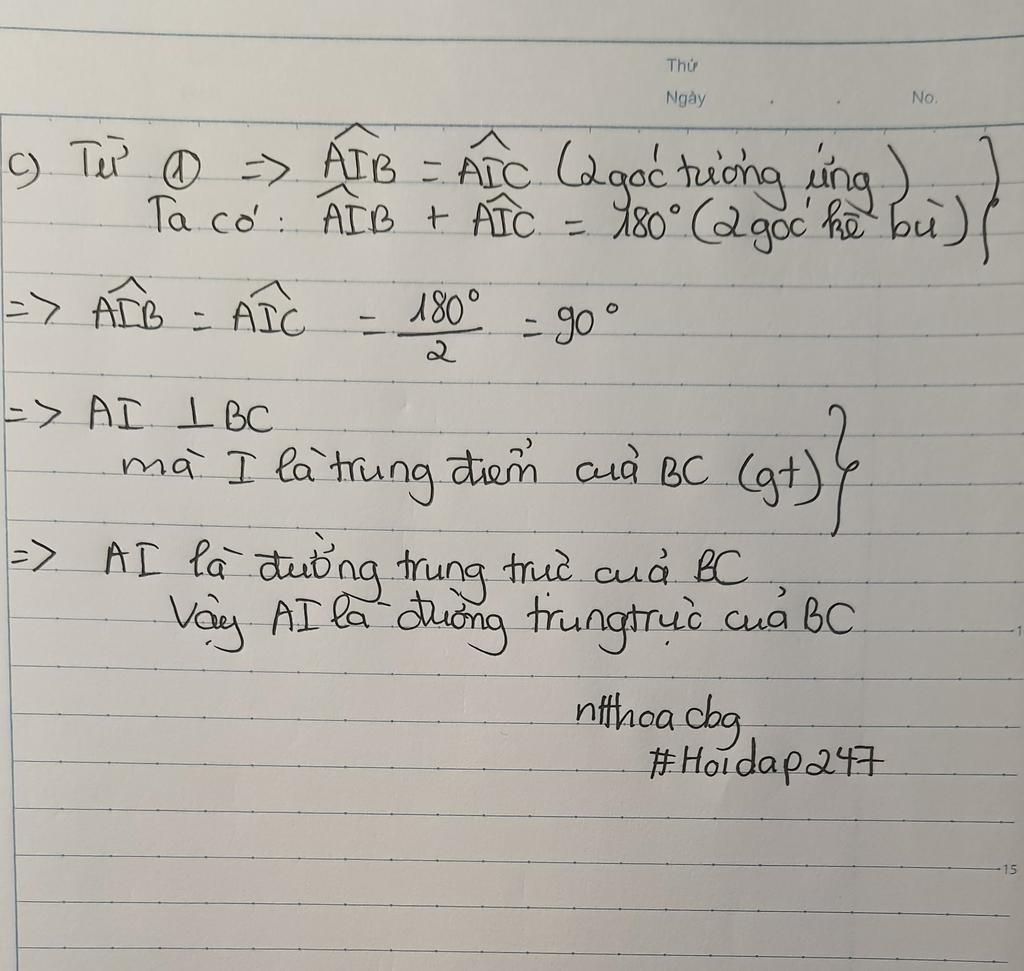 Thứ
Ngày . . No.
c) Từ ① => AIB̂ = AIĈ (2 góc tương ứng) }
Ta có: AIB̂ + AIĈ = 180° (2 góc kề bù) }
=> AIB̂ = AIĈ = 180°/2 = 90°
=> AI ⊥ BC
mà I là trung điểm của BC (gt) }
=> AI là đường trung trực của BC
Vậy AI là đường trung trực của BC
1
ntthoacbg
#Hoidap247
15